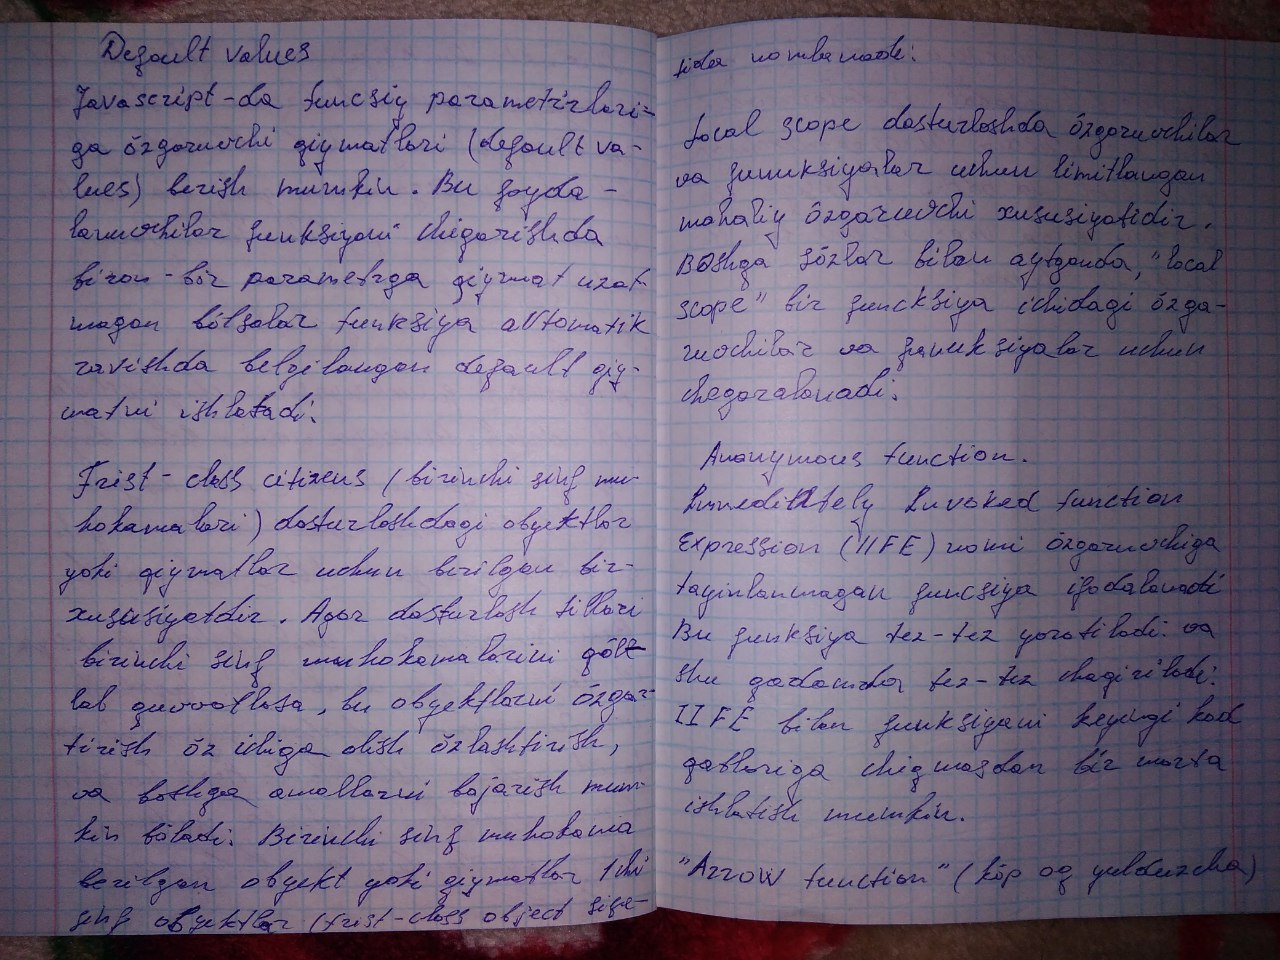 Default values
Javascript-da funcsiy parametirlari-
ga özgaruvchi qiymatlari (default va-
lues) berish mumkin. Bu foyda-
lanuvchilar funksiyani chigarishda
biron-bir parametrga qiymat uzat-
magan bölsalar funksiya avtomatik
ravishda belgilangan default qiy-
matni ishlatadi.
Frist-class citizens (birinchi sinf mu-
hokamalari) dasturlashdagi obyektlar
yoki qiymatlar uchun berilgan bir-
xususiyatdir. Agar dasturlash tillari
birinchi sinf muhokamalarini qöl-
lab quvvatlasa, bu obyektlarni özgar-
tirish öz ichiga olish özlashtirish,
va boshqa amallarni bajarish mum-
kin böladi. Birinchi sinf muhokama
berilgan obyekt yoki qiymatlar 1chi
sinf obyektlar (frist-class object sife-
tida nombanadi.
Local scope dasturlashda özgaruvchilar
va funuksiyalar uchun limitlangan
mahaliy özgaruvchi xususiyatidir.
Boshqa sözlar bilan aytganda, "local
scope" bir funcksiya ichidagi özga-
ruvchilar va funuksiyalar uchun
chegaralanadi.
Anonymous function.
Immeditately Invoked function
Expression (IIFE) nomi özgaruvchiga
tayinlanmagan funcsiya ifodalanadi
Bu funksiya tez-tez yaratiladi va
shu qadamda tez-tez chagiriladi.
IIFE bilan funksiyani keyingi kod
qatlariga chiqmasdan bir marta
ishlatish mumkin.
"Arrow function" (köp oq yulduzcha)